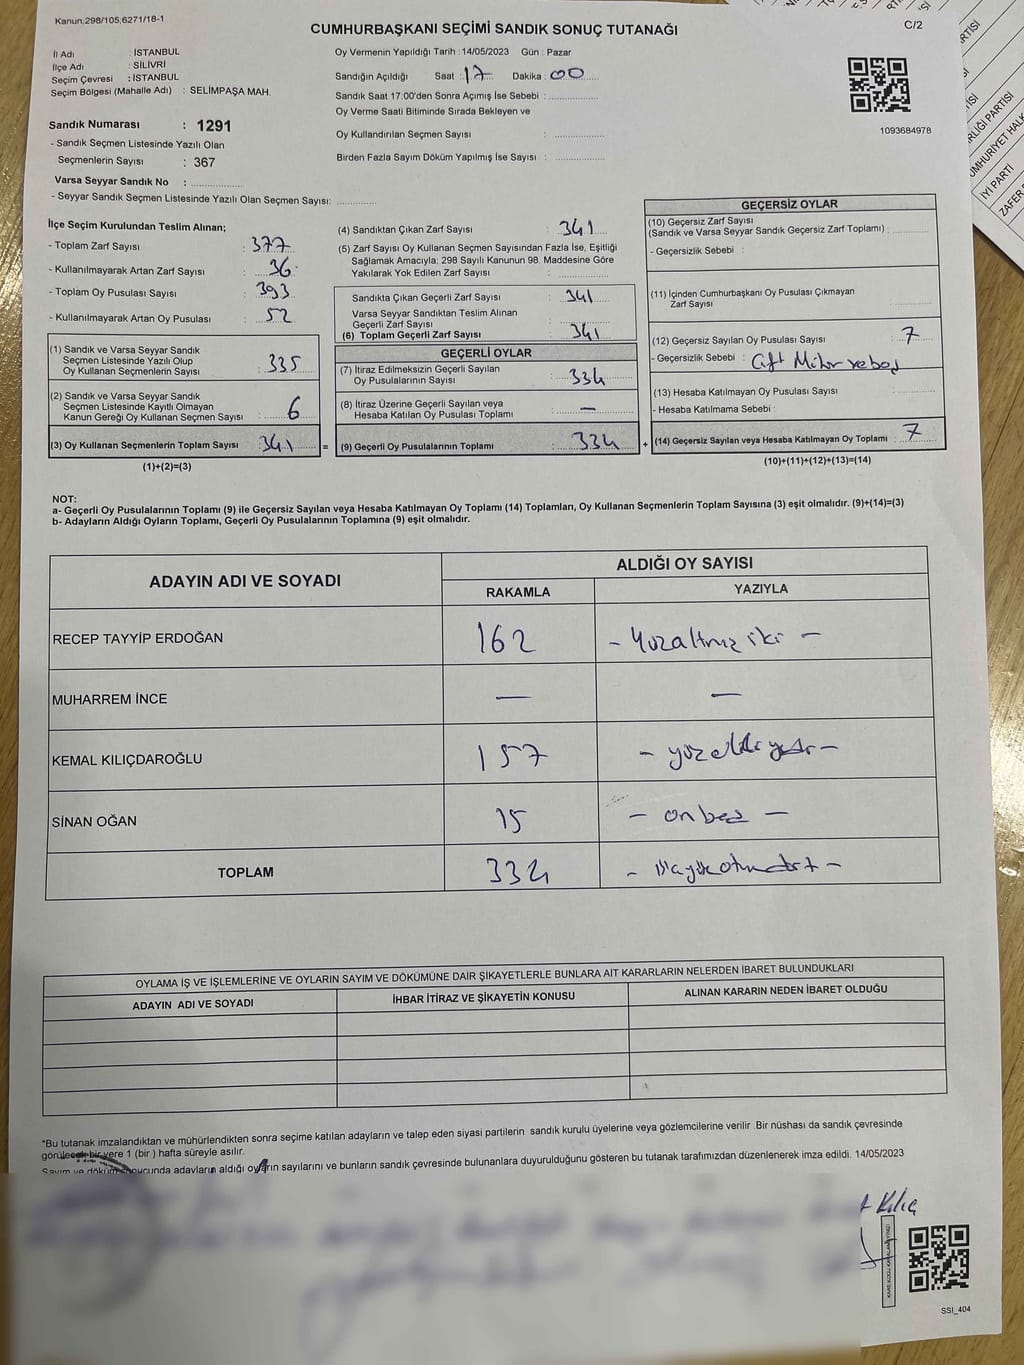 Kanun:298/105;6271/18-1
C/2
CUMHURBAŞKANI SEÇİMİ SANDIK SONUÇ TUTANAĞI
İl Adı : İSTANBUL
İlçe Adı : SİLİVRİ
Seçim Çevresi : İSTANBUL
Seçim Bölgesi (Mahalle Adı) : SELİMPAŞA MAH.
Sandık Numarası : 1291
- Sandık Seçmen Listesinde Yazılı Olan
Seçmenlerin Sayısı : 367
Varsa Seyyar Sandık No :
- Seyyar Sandık Seçmen Listesinde Yazılı Olan Seçmen Sayısı:
Oy Vermenin Yapıldığı Tarih : 14/05/2023 Gün : Pazar
Sandığın Açıldığı Saat : 17 Dakika : 00
Sandık Saat 17:00'den Sonra Açımış İse Sebebi :
Oy Verme Saati Bitiminde Sırada Bekleyen ve
Oy Kullandırılan Seçmen Sayısı :
Birden Fazla Sayım Döküm Yapılmış İse Sayısı :
1093684978
İlçe Seçim Kurulundan Teslim Alınan;
- Toplam Zarf Sayısı : 377
- Kullanılmayarak Artan Zarf Sayısı : 36
- Toplam Oy Pusulası Sayısı : 393
- Kullanılmayarak Artan Oy Pusulası : 52
(1) Sandık ve Varsa Seyyar Sandık
Seçmen Listesinde Yazılı Olup
Oy Kullanan Seçmenlerin Sayısı : 335
(2) Sandık ve Varsa Seyyar Sandık
Seçmen Listesinde Kayıtlı Olmayan
Kanun Gereği Oy Kullanan Seçmen Sayısı : 6
(3) Oy Kullanan Seçmenlerin Toplam Sayısı : 341 =
(1)+(2)=(3)
(4) Sandıktan Çıkan Zarf Sayısı : 341
(5) Zarf Sayısı Oy Kullanan Seçmen Sayısından Fazla İse, Eşitliği
Sağlamak Amacıyla; 298 Sayılı Kanunun 98. Maddesine Göre
Yakılarak Yok Edilen Zarf Sayısı :
Sandıkta Çıkan Geçerli Zarf Sayısı : 341
Varsa Seyyar Sandıktan Teslim Alınan
Geçerli Zarf Sayısı :
(6) Toplam Geçerli Zarf Sayısı : 341
GEÇERLİ OYLAR
(7) İtiraz Edilmeksizin Geçerli Sayılan
Oy Pusulalarının Sayısı : 334
(8) İtiraz Üzerine Geçerli Sayılan veya
Hesaba Katılan Oy Pusulası Toplamı : —
(9) Geçerli Oy Pusulalarının Toplamı : 334 +
GEÇERSİZ OYLAR
(10) Geçersiz Zarf Sayısı
(Sandık ve Varsa Seyyar Sandık Geçersiz Zarf Toplamı) :
- Geçersizlik Sebebi :
(11) İçinden Cumhurbaşkanı Oy Pusulası Çıkmayan
Zarf Sayısı :
(12) Geçersiz Sayılan Oy Pusulası Sayısı : 7
- Geçersizlik Sebebi : Çift Mühür ve boş
(13) Hesaba Katılmayan Oy Pusulası Sayısı :
- Hesaba Katılmama Sebebi :
(14) Geçersiz Sayılan veya Hesaba Katılmayan Oy Toplamı : 7
(10)+(11)+(12)+(13)=(14)
NOT:
a- Geçerli Oy Pusulalarının Toplamı (9) ile Geçersiz Sayılan veya Hesaba Katılmayan Oy Toplamı (14) Toplamları, Oy Kullanan Seçmenlerin Toplam Sayısına (3) eşit olmalıdır. (9)+(14)=(3)
b- Adayların Aldığı Oyların Toplamı, Geçerli Oy Pusulalarının Toplamına (9) eşit olmalıdır.
ADAYIN ADI VE SOYADI
ALDIĞI OY SAYISI
RAKAMLA YAZIYLA
RECEP TAYYİP ERDOĞAN 162 - Yüzaltmış iki -
MUHARREM İNCE — —
KEMAL KILIÇDAROĞLU 157 - yüzelli yedi -
SİNAN OĞAN 15 - onbeş -
TOPLAM 334 - üçyüzotuzdört -
OYLAMA İŞ VE İŞLEMLERİNE VE OYLARIN SAYIM VE DÖKÜMÜNE DAİR ŞİKAYETLERLE BUNLARA AİT KARARLARIN NELERDEN İBARET BULUNDUKLARI
ADAYIN ADI VE SOYADI İHBAR İTİRAZ VE ŞİKAYETİN KONUSU ALINAN KARARIN NEDEN İBARET OLDUĞU
*Bu tutanak imzalandıktan ve mühürlendikten sonra seçime katılan adayların ve talep eden siyasi partilerin sandık kurulu üyelerine veya gözlemcilerine verilir .Bir nüshası da sandık çevresinde
görülecek bir yere 1 (bir ) hafta süreyle asılır.
Sayım ve döküm sonucunda adayların aldığı oyların sayılarını ve bunların sandık çevresinde bulunanlara duyurulduğunu gösteren bu tutanak tarafımızdan düzenlenerek imza edildi. 14/05/2023
Kılıç
SSI_404
İYİ PARTİ
ZAFER